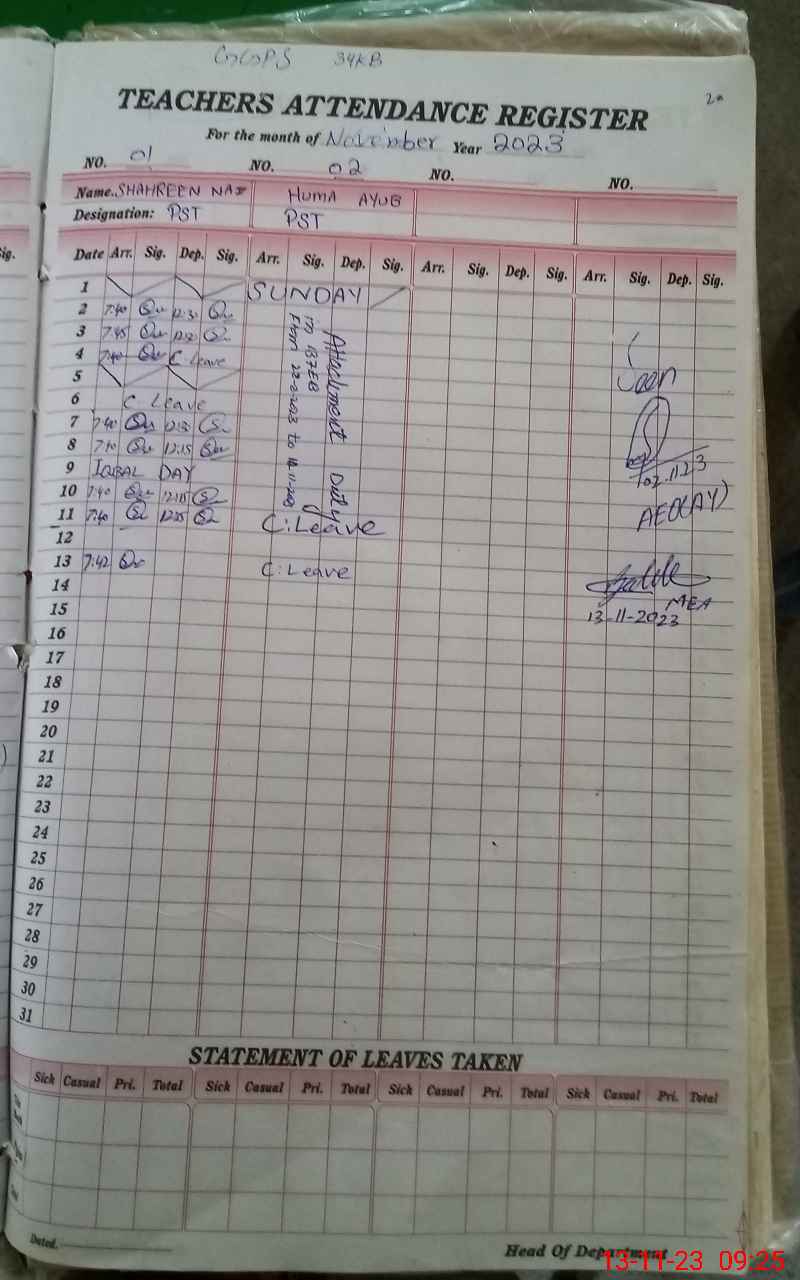 GGPS 34KB
2a
TEACHERS ATTENDANCE REGISTER
For the month of November Year 2023
NO. 01 NO. 02 NO. NO.
Name.. SHAHREEN NAZ HUMA AYUB
Designation: PST PST
Date Arr. Sig. Dep. Sig. Arr. Sig. Dep. Sig. Arr. Sig. Dep. Sig. Arr. Sig. Dep. Sig.
1 SUNDAY
2 7:40
3 7:45
4 7:40 C Leave
5
6 C Leave
7 7:40
8 7:40 12:15
9 IQBAL DAY
10 7:40 12:15
11 7:40 C:Leave
12
13 7:42 C:Leave
14
15
16
17
18
19
20
21
22
23
24
25
26
27
28
29
30
31
Attachment Duty
in
From to
Seen
AEO(AY)
MEA
13-11-2023
STATEMENT OF LEAVES TAKEN
Sick Casual Pri. Total Sick Casual Pri. Total Sick Casual Pri. Total Sick Casual Pri. Total
Dated.
Head Of Department
13-11-23 09:25